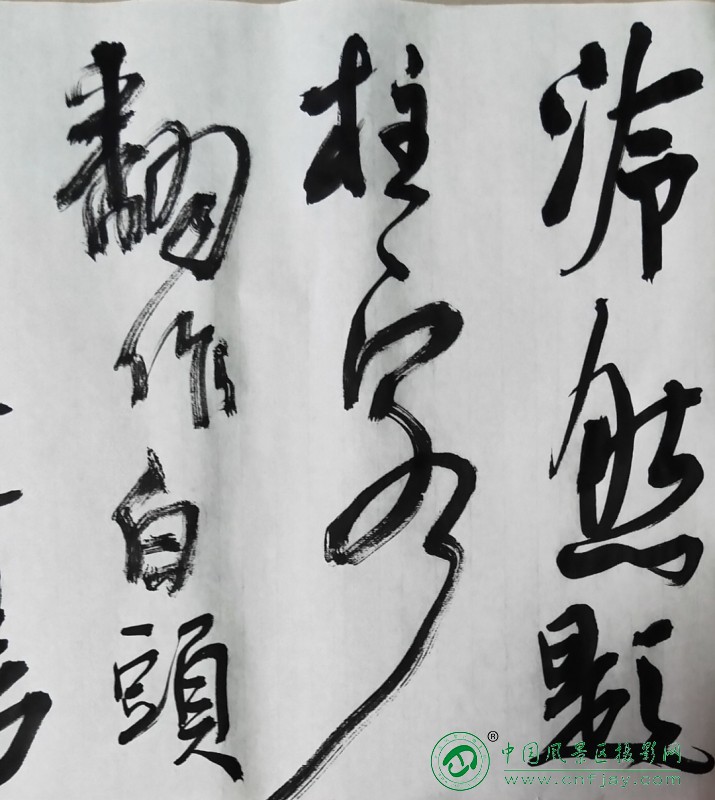 泠然題
柱客
翻作白頭
®
中国风景区摄影网
www.cnfjqy.com